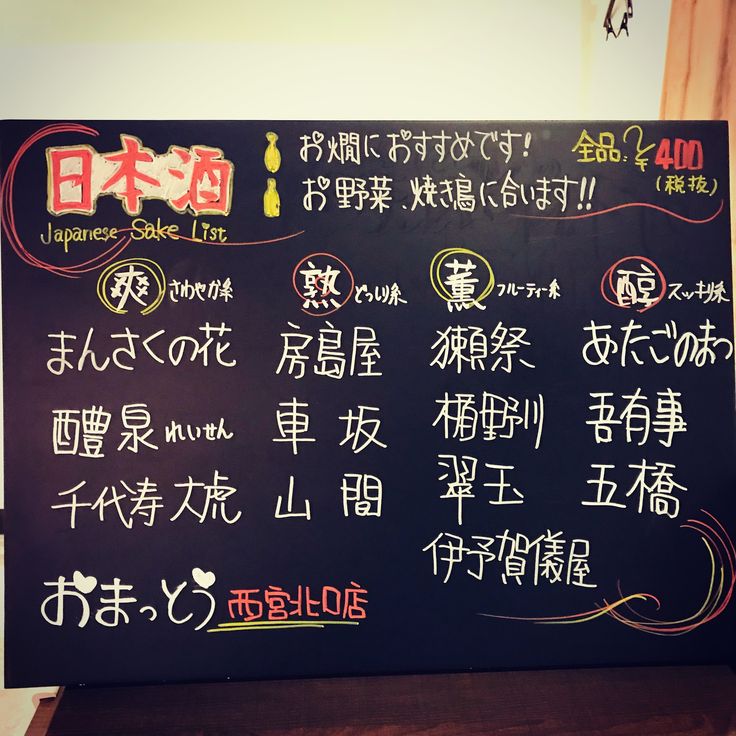 日本酒
Japanese Sake List
お燗におすすめです!
お野菜、焼き鳥に合います!!
全品:¥400
(税抜)
爽 さわやか系
まんさくの花
醴泉 れいせん
千代寿 大虎
熟 どっしり系
房島屋
車坂
山間
薫 フルーティー系
獺祭
楯野川
翠玉
伊予賀儀屋
醇 スッキリ系
あたごのまつ
吾有事
五橋
おまっとう 西宮北口店